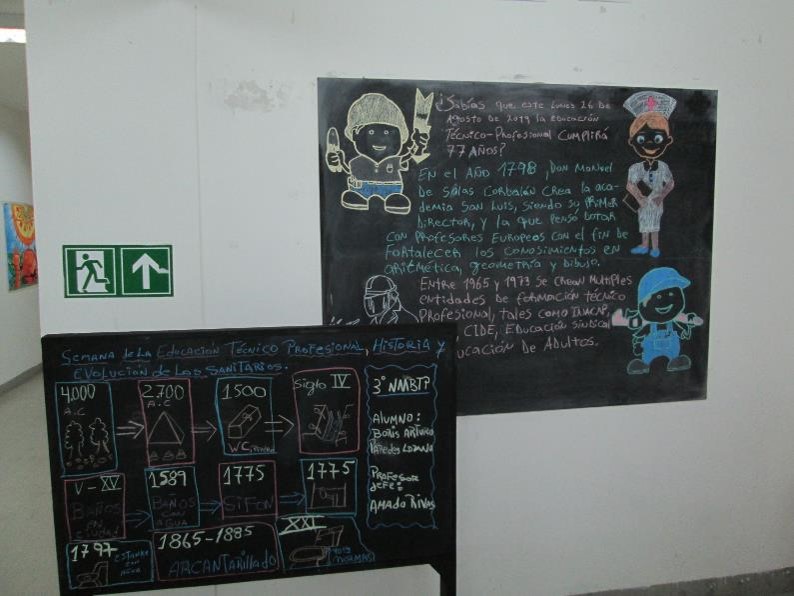 ¿Sabías que este lunes 26 de
Agosto de 2019 la Educación
Técnico-Profesional cumplirá
77 años?
En el año 1798, Don Manuel
de Salas Corbalán crea la aca-
demia San Luis, siendo su primer
Director, y la que pensó dotar
con profesores Europeos con el fin de
fortalecer los conosimientos en
aritmética, geometría y dibujo.
Entre 1965 y 1973 se crean multiples
entidades de formación técnico
Profesional, tales como INACAP,
CIDE, Educación sindical
ducación de Adultos.
Semana de la Educación Técnico Profesional, Historia y
Evolución de los sanitarios.
4.000
A.C
2.700
A.C
1.500
WC
Siglo IV
V - XV
Baños
en
ciudad
1589
Baños
con
agua
1775
Sifon
1775
1797
Estanke
con
agua
1865-1885
Arcantarillado
XXI
Normas
3° NMBTP
Alumno:
Boris Arturo
Paredes Lozano
Profesor
Jefe:
Amado Rivas